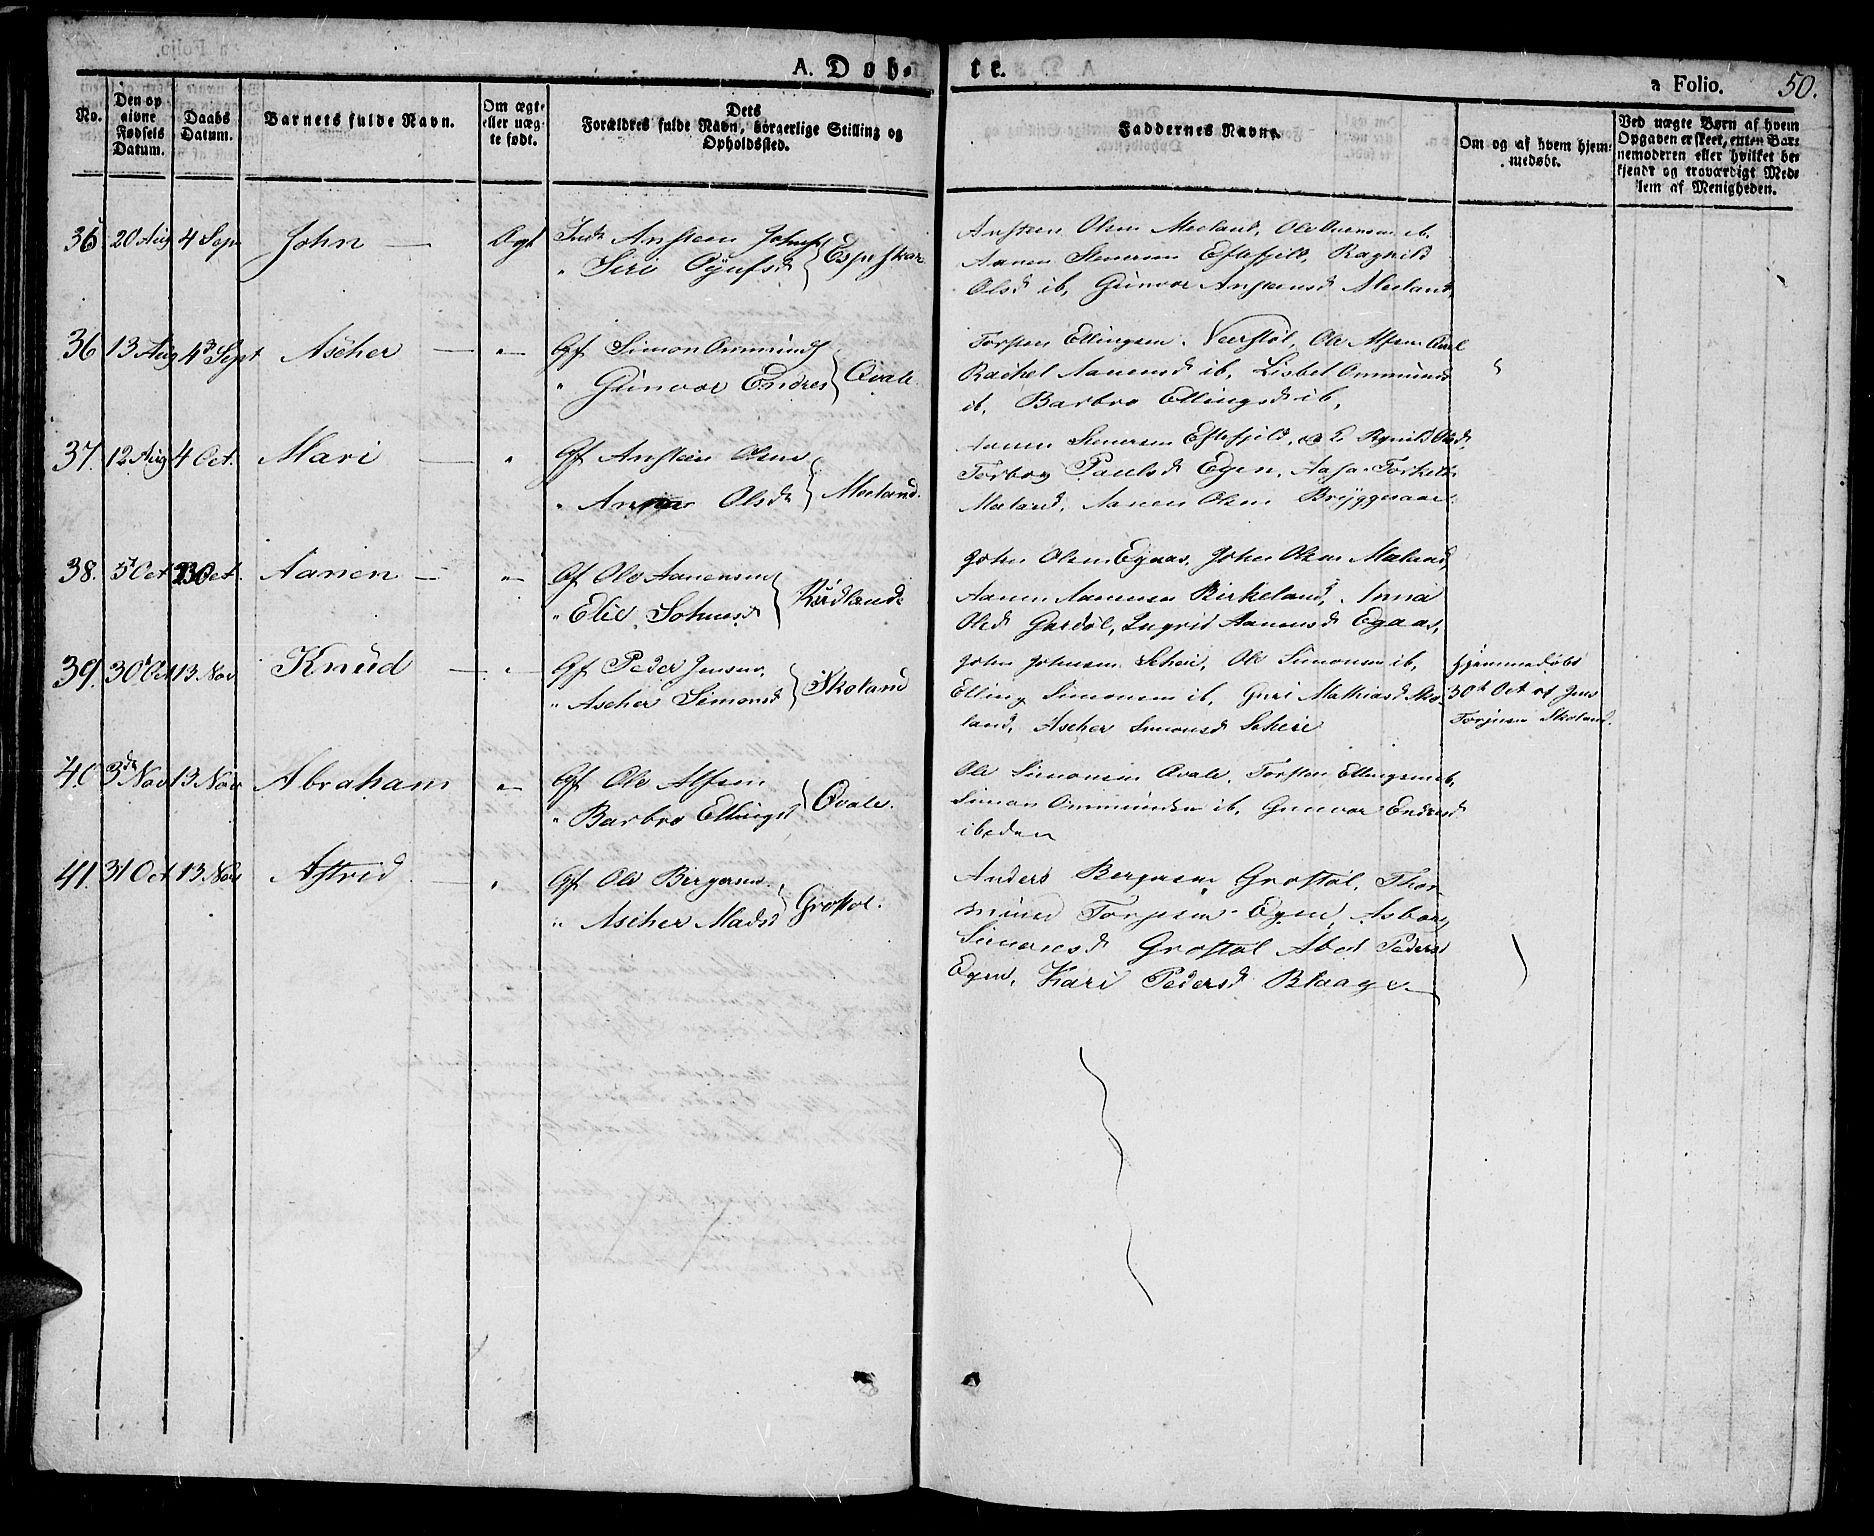 A. Døb-
te.
a Folio. 50.
No.
Den op
givne
Fødsels
Datum.
Daabs
Datum.
Barnets fulde Navn.
Om ægt-
eller uæg-
te født.
Dets
Forældres fulde Navn, borgerlige Stilling og
Opholdssted.
Faddernes Navne.
Om og af hvem hjem-
medøbt.
Ved uægte Børn af hvem
Opgaven er skeet, enten Bar-
nemoderen eller hvilket be-
kjendt og troværdigt Med-
lem af Menigheden.
35 20 Aug 4 Sep John Ægt Inds Ansteen Johns
" Siri
Ansteen Olsen Meeland,
Aanen Eftefjeld, Ragnild
Olsd ib, Gunvor Anstensd Meeland
36 13 Aug 4 Sept Ascher " Gf Simon Ommunds
" Gunvor Endres Qvale
Torsten Ellingsen Ole Alfsen Qvale
Rachel Aanensd ib, Lisbet Ommunds
ib, Barbro Ellingsd ib,
37. 12 Aug 4 Oct. Mari " Gf Ansteen Olsen
" Anna Olsd Meeland.
Aanen Eftefjeld,
Torborg Paulsd Egen, Aasa Torkels
Meeland, Aanen Olsen
38. 5t Oct Oct. Aanen " Gf Ole Aanensen
" Elie Johnsd
John Olsen Egaas, John Olsen Meeland,
Aanen Aanensen Birkeland, Anna
Olsd Ingrid Aanensd Egaas,
39. 30t Oct 13 Nov Knud " Gf Peder Jensen,
" Ascher Simonsd Skoland
John Johnsen Scheie, Ole Simonsen ib,
Elling Simonsen ib, Guri Mathiasd Sko-
land, Ascher Simonsd Scheie
Hjemmedøbt
30t Oct af Jens
Torjusen Skoland.
40 3de Nov 13 Nov Abraham " Gf Ole Alfsen
" Barbro Ellingsd Qvale.
Ole Simonsen Qvale, Torsten Ellingsen ib,
Simon Ommundsen ib, Gunvor Endresd
ibeden
41. 31 Oct 13 Nov Astrid " Gf Ole Bergersen,
" Ascher Madsd Grostøl.
Anders Bergersen Grostøl, Thor-
mund Torjusen Egen, Asborg
Simonsd Grostøl Abel Pedersd
Egen, Kari Pedersd Blaage